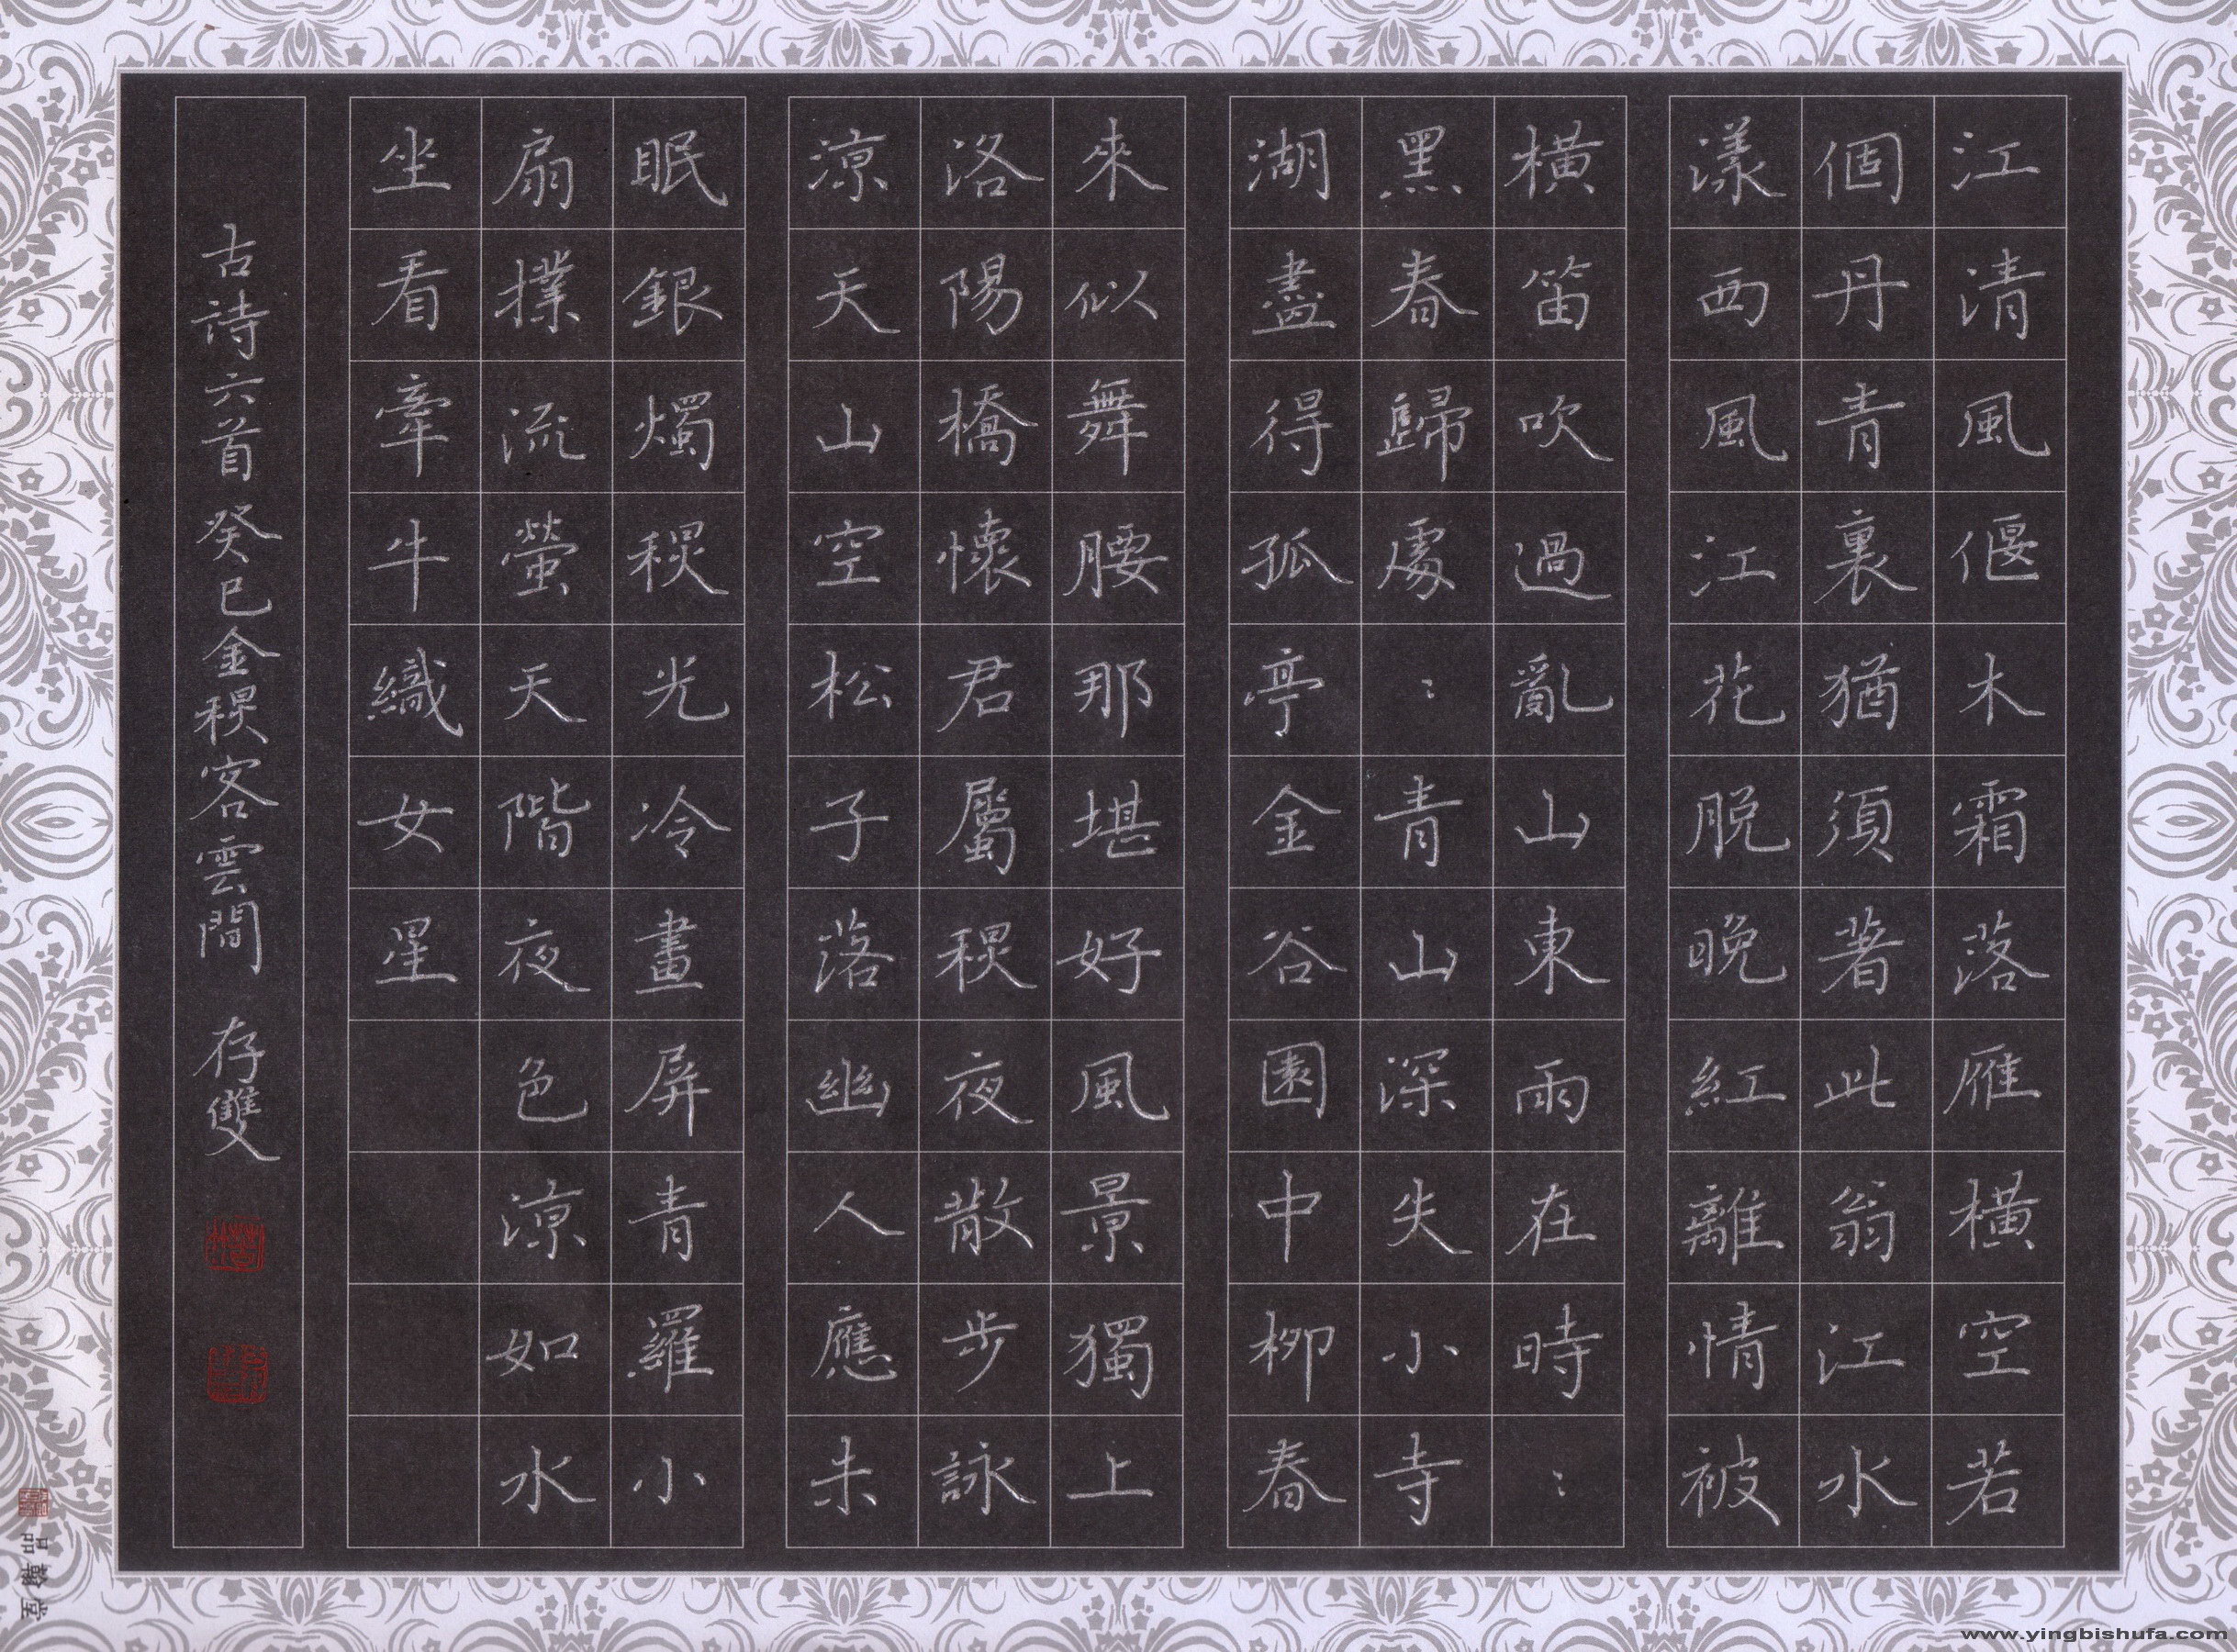 江清風偃木霜落雁橫空若
個丹青裏猶須著此翁江水
漾西風江花脫晚紅離情被
橫笛吹過亂山東雨在時:
黑春歸處:青山深失小寺
湖盡得孤亭金谷園中柳春
來似舞腰那堪好風景獨上
洛陽橋懷君屬秋夜散步詠
涼天山空松子落幽人應未
眠銀燭秋光冷畫屏青羅小
扇撲流螢天階夜色涼如水
坐看牽牛織女星
古詩六首癸巳金秋客雲間 存雙
品翰堂
www.yingbishufa.com